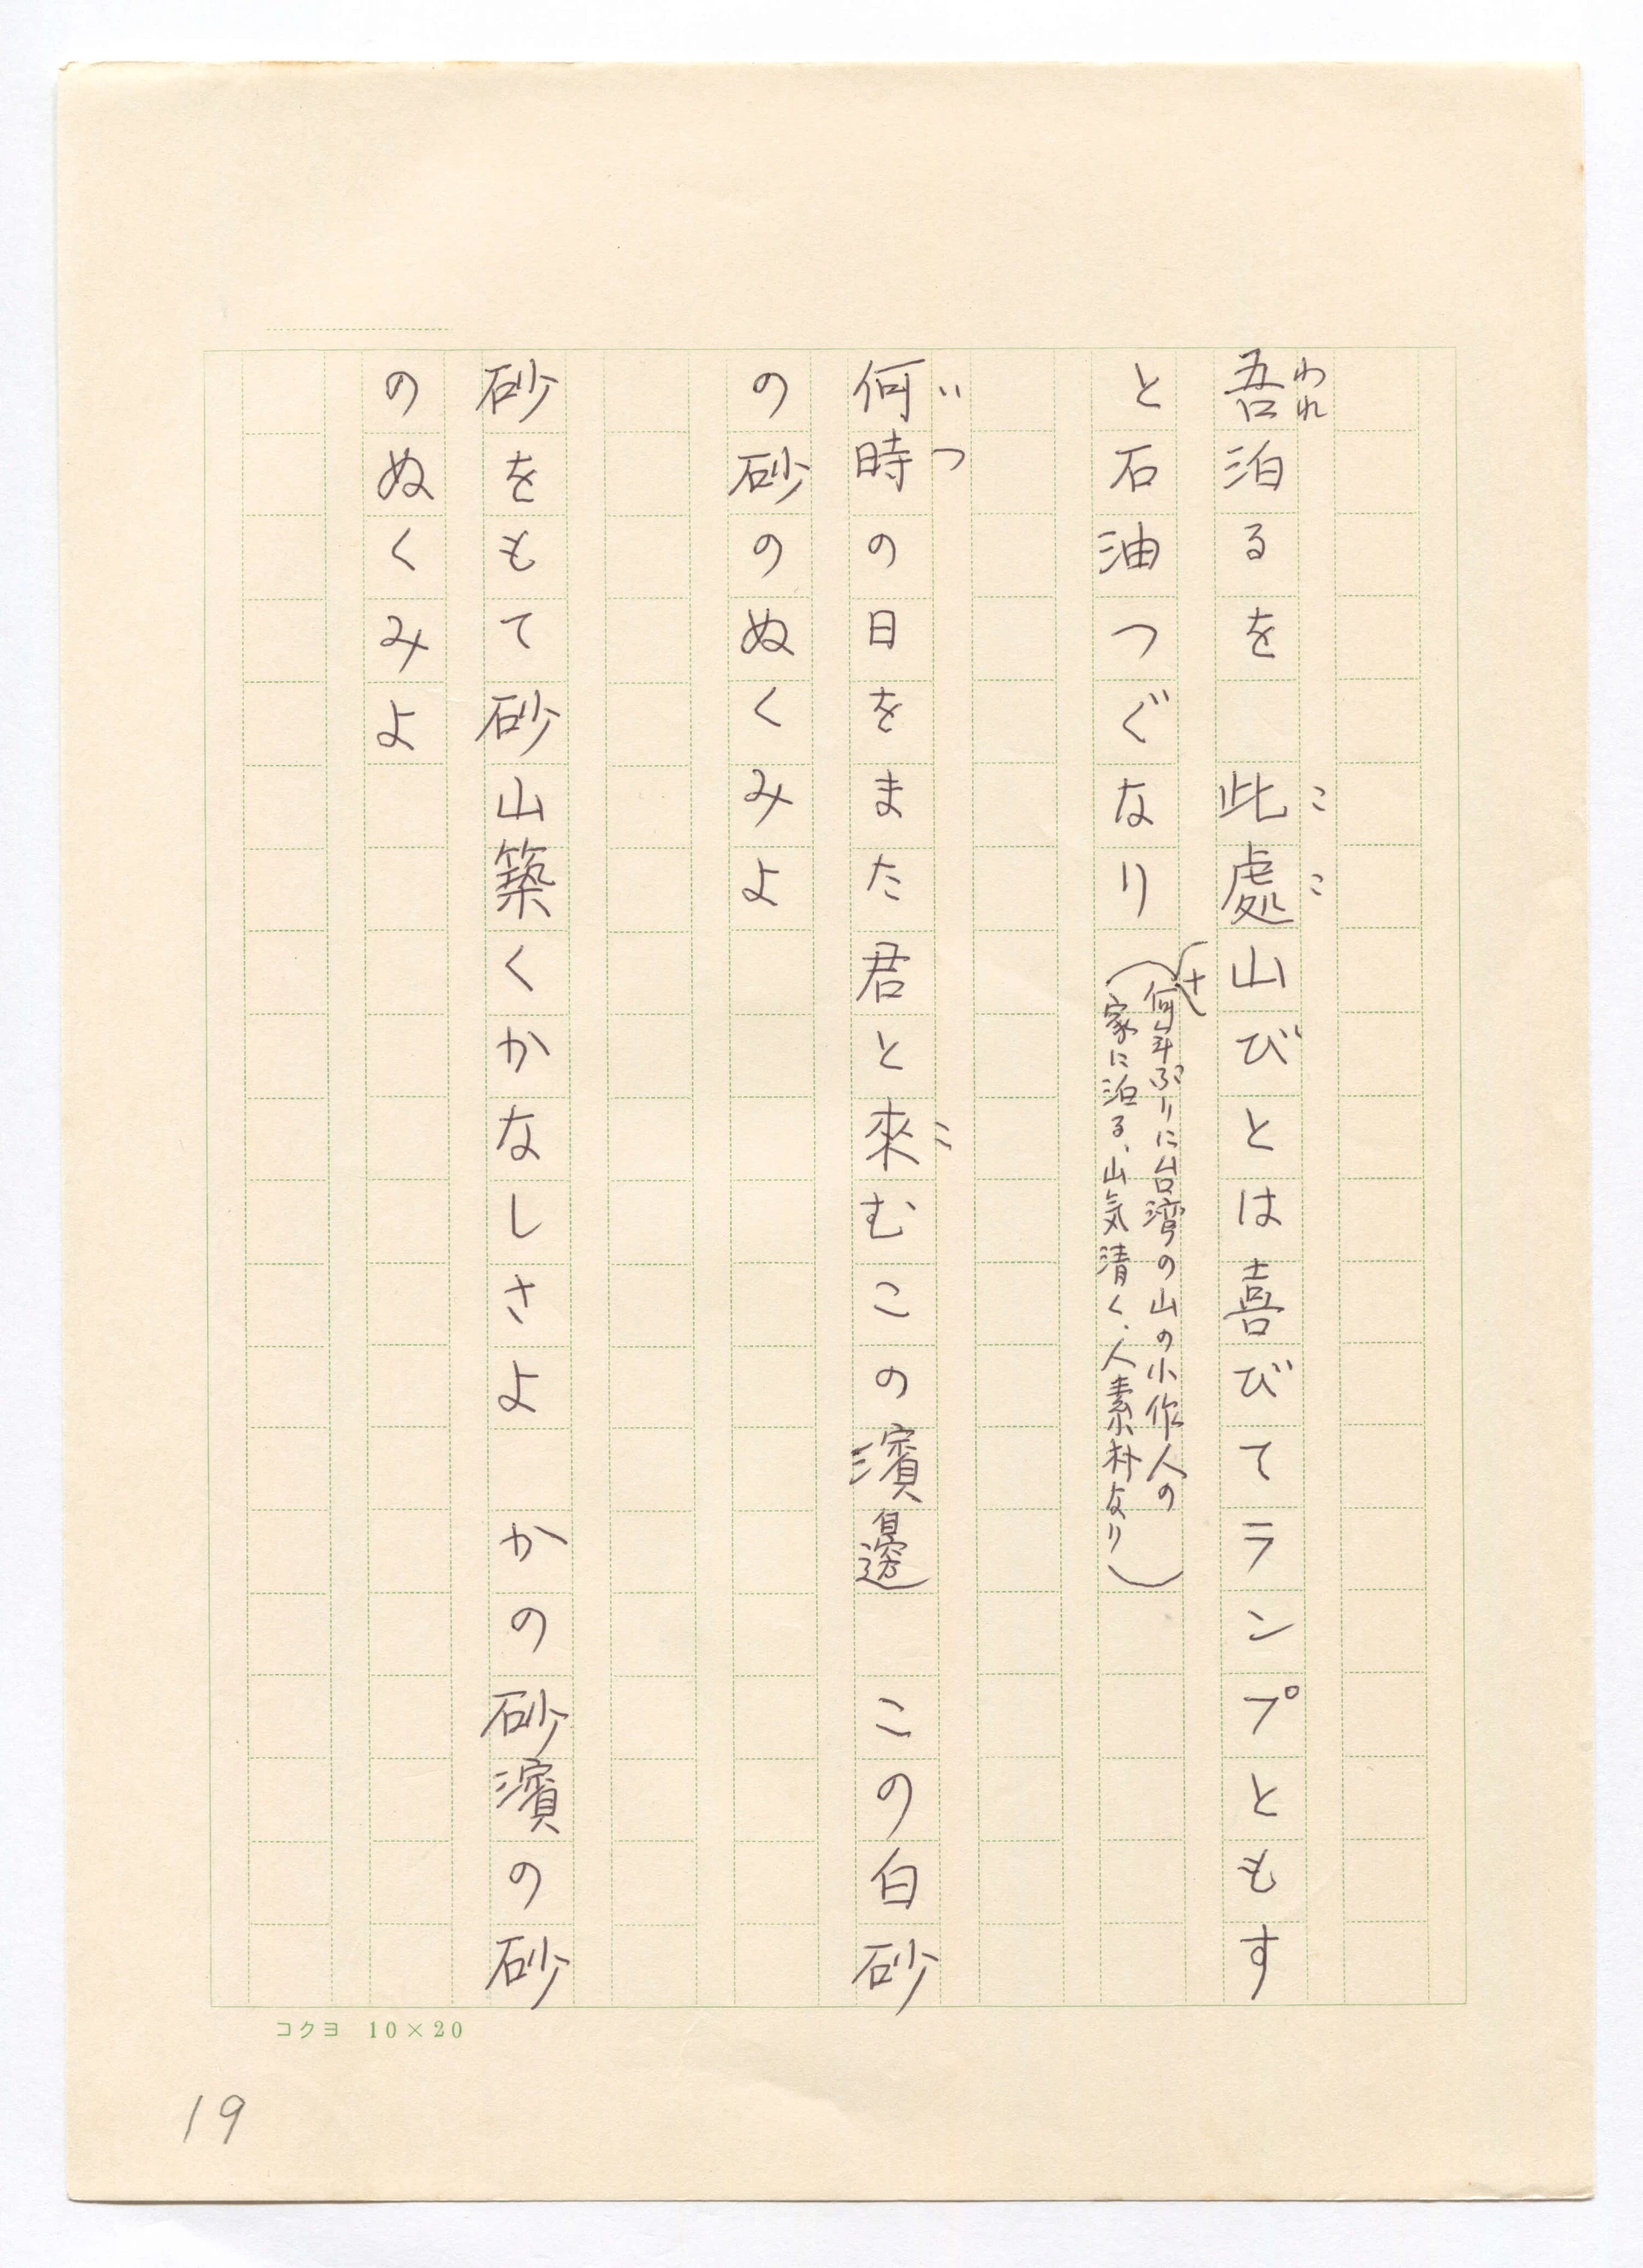 吾泊るを　此處山びとは喜びてランプともす
と石油つぐなり
(何十年ぶりに台湾の山の小作人の
家に泊る、山気清く、人素朴なり)
何時の日をまた君と來むこの濱邊　この白砂
の砂のぬくみよ
砂をもて砂山築くかなしさよ　かの砂濱の砂
のぬくみよ
われ
ここ
いつ
こ
コクヨ 10×20
19